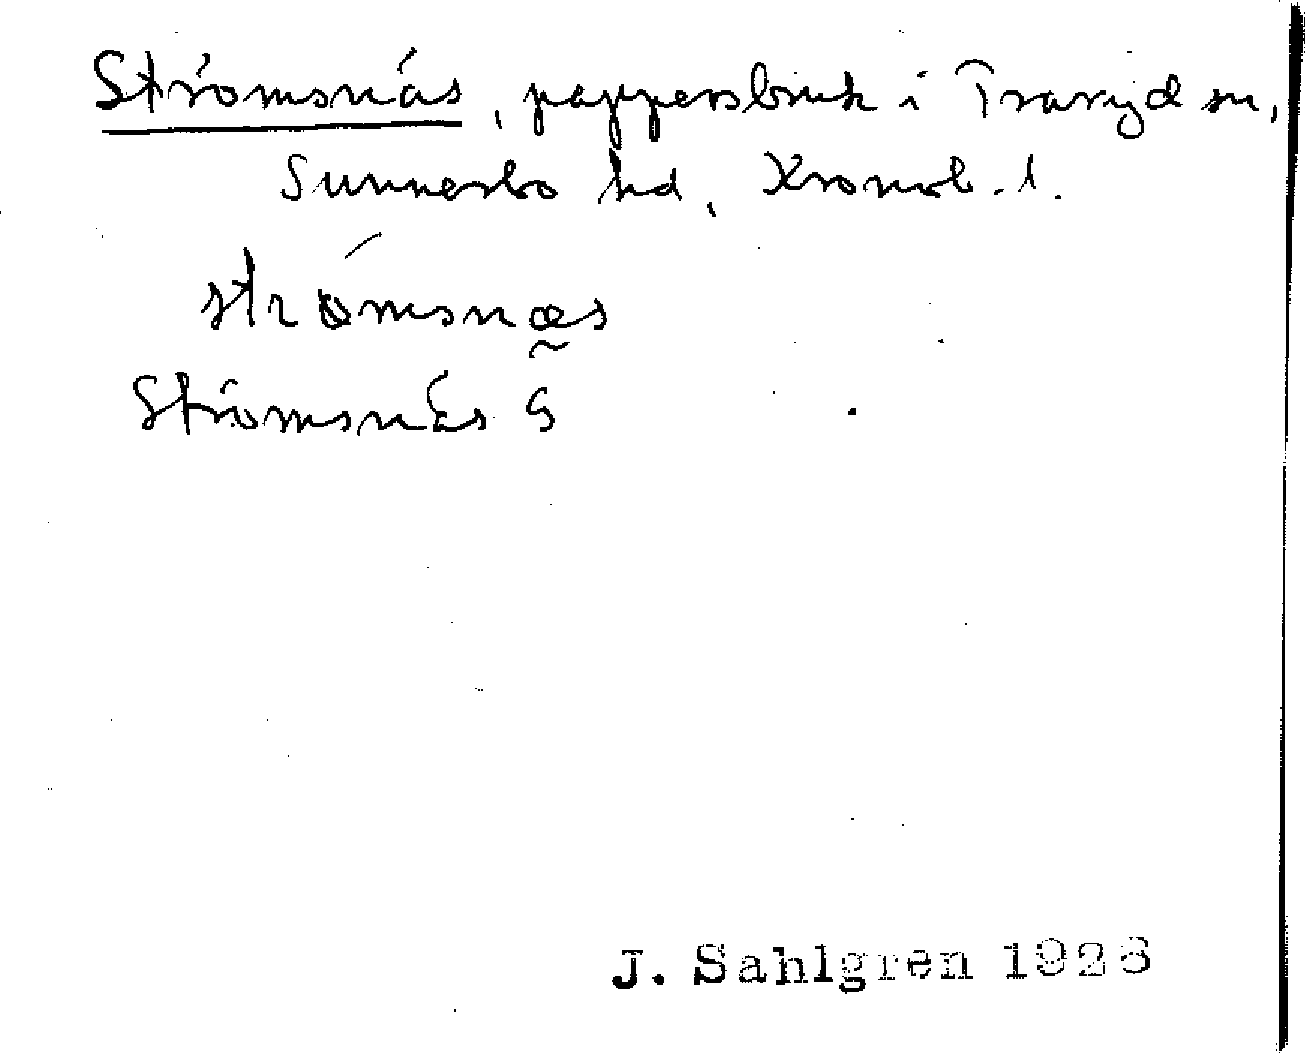 Strömsnäs, pappersbruk i Traryd sn,
Sunnerbo hd, Kronob. l.
strömsnæs
Strömsnäs G
J. Sahlgren 1926